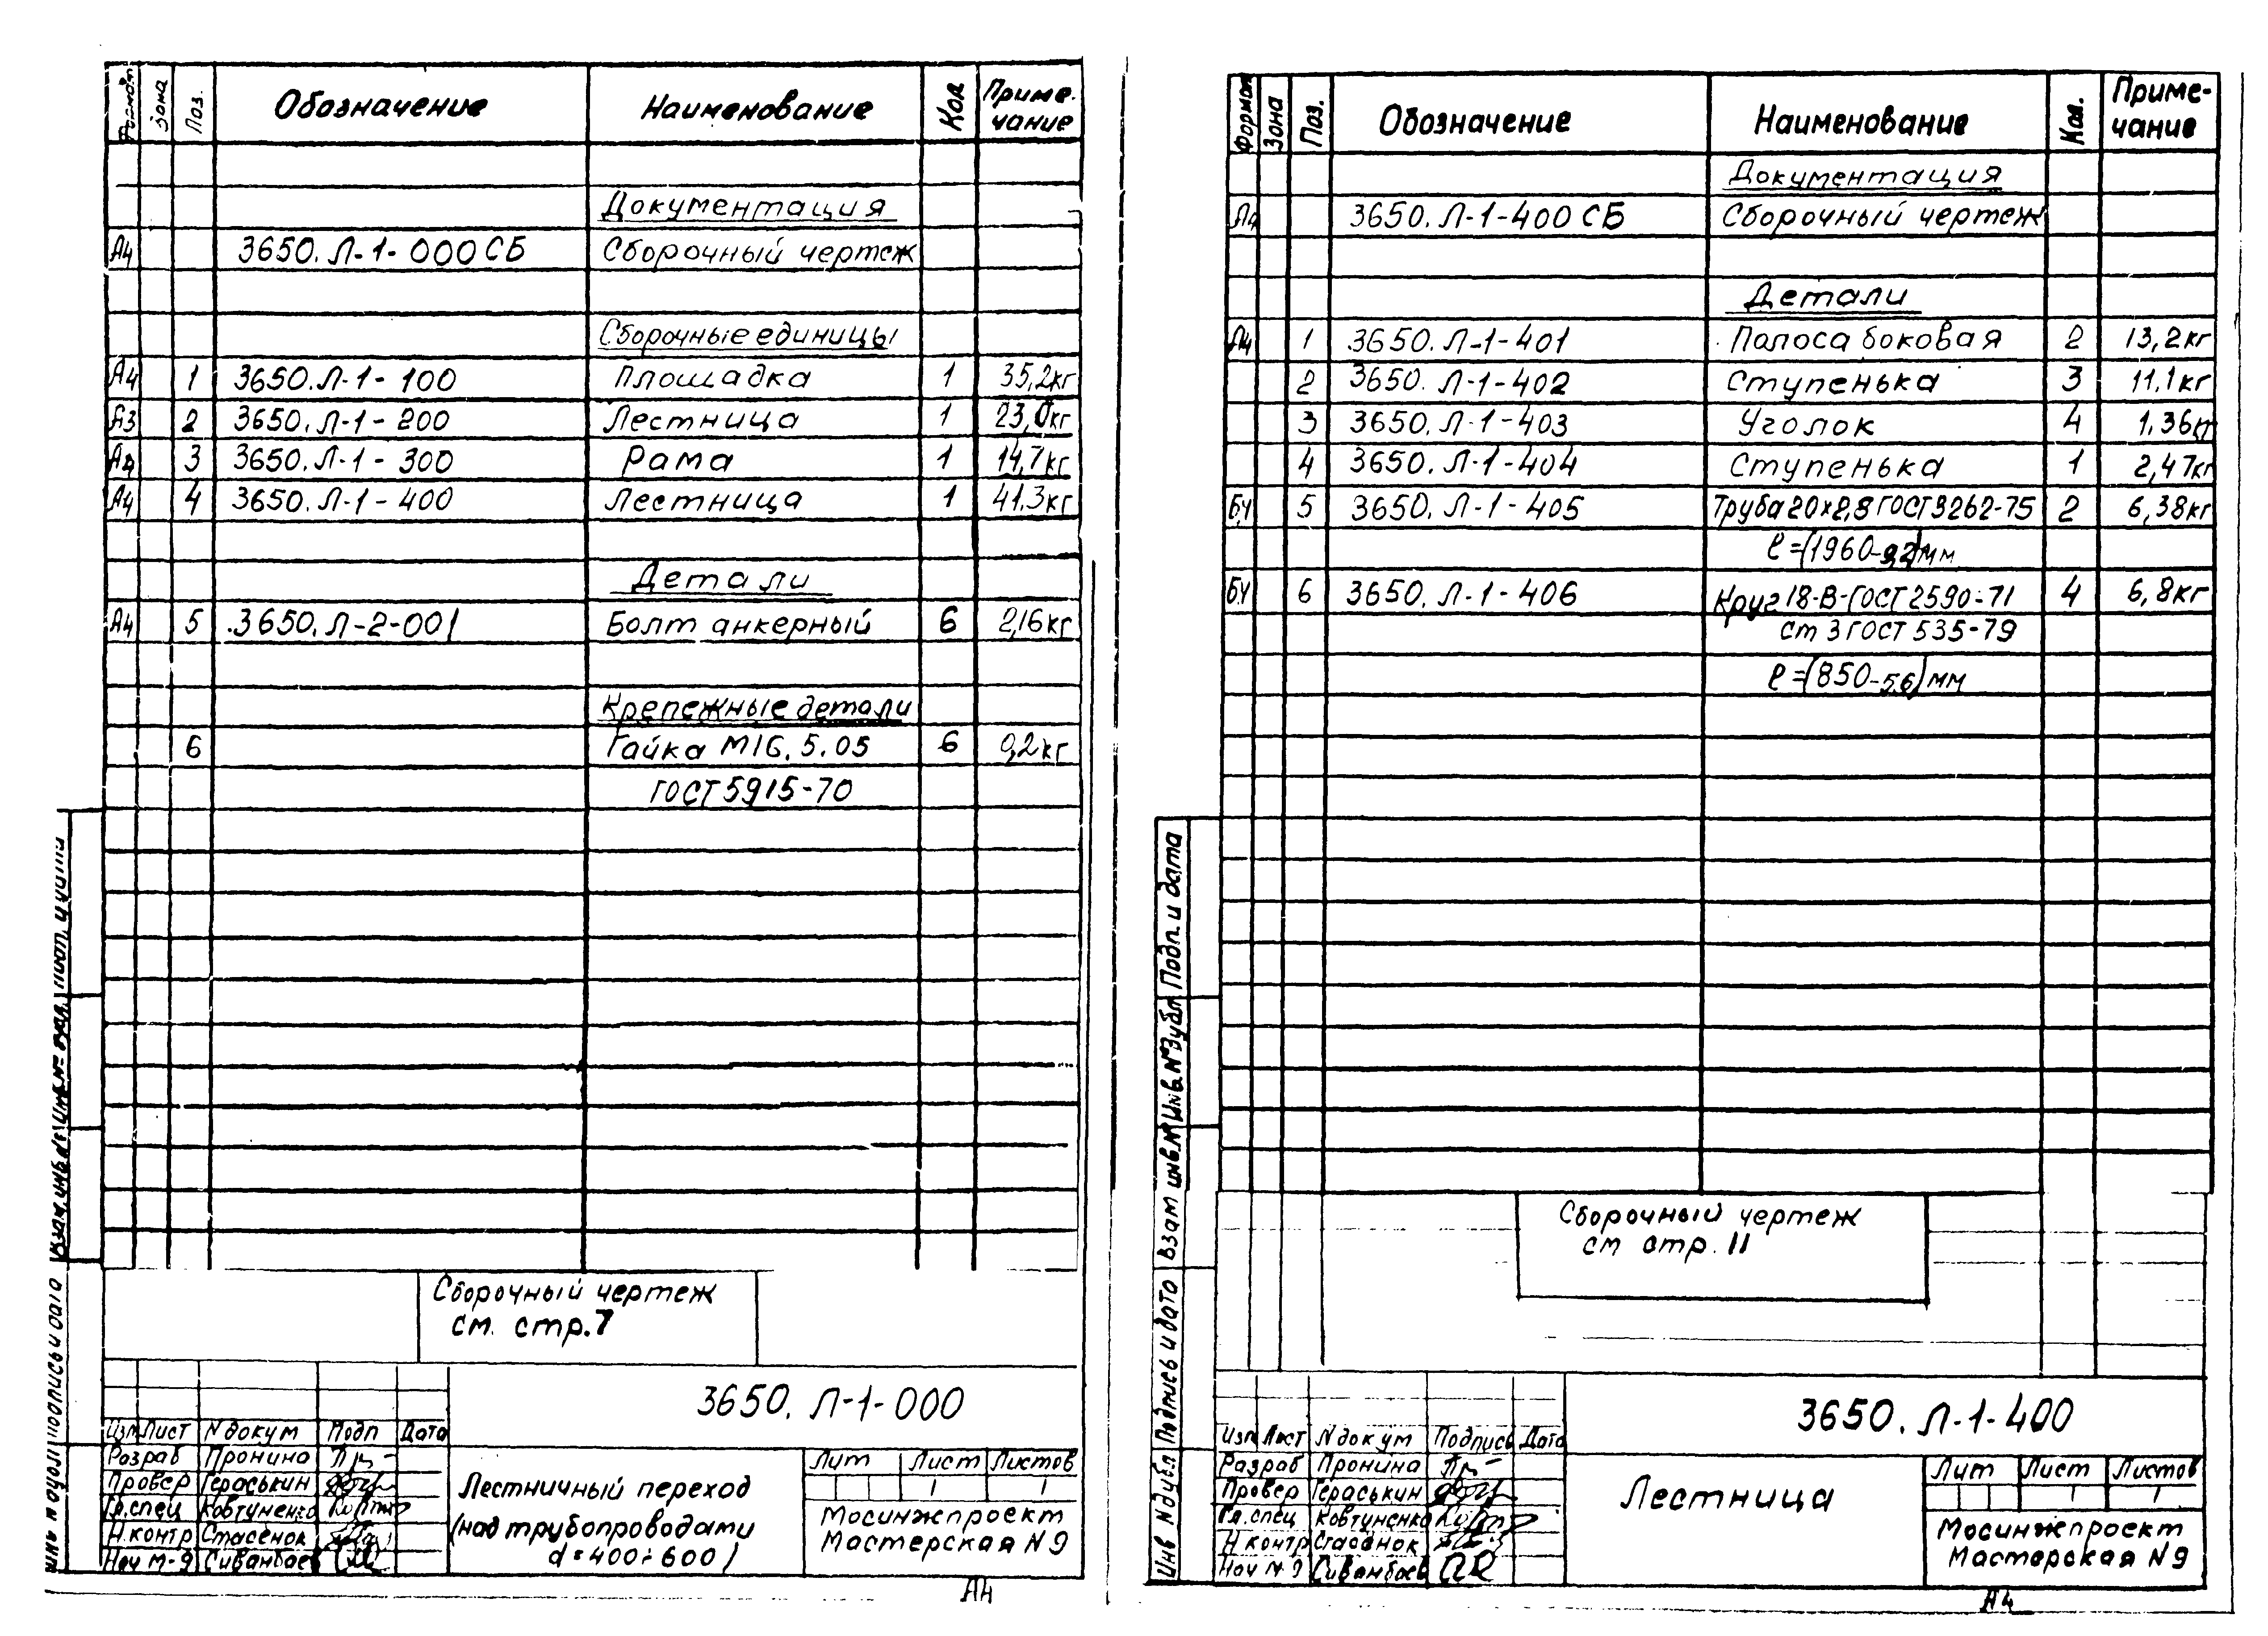 Формат Зона Поз. Обозначение Наименование Кол Приме-чание
Документация
А4 3650.Л-1-000СБ Сборочный чертеж
Сборочные единицы
А4 1 3650.Л-1-100 Площадка 1 35,2кг
А3 2 3650.Л-1-200 Лестница 1 23,0кг
А4 3 3650.Л-1-300 Рама 1 14,7кг
А4 4 3650.Л-1-400 Лестница 1 41.3кг
Детали
А4 5 .3650.Л-2-001 Болт анкерный 6 2,16кг
Крепежные детали
6 Гайка М16.5.05 6 0,2кг
ГОСТ 5915-70
Сборочный чертеж
см. стр.7
3650. Л-1-000
Изм Лист N докум Подп Дата
Разраб Пронина
Провер Гераськин
Гл.спец Ковтуненко
Н.контр Стасенок
Нач М-9 Сиванбаев
Лестничный переход
(над трубопроводами
d=400÷600)
Лит Лист Листов
1 1
Мосинжпроект
Мастерская N9
А4
Взам.инв.№ Инв.№ дубл. Подп. и дата
Инв N дубл Подпись и дата
Формат Зона Поз. Обозначение Наименование Кол. Приме-чание
Документация
А4 3650.Л-1-400 СБ Сборочный чертеж
Детали
А4 1 3650.Л-1-401 Полоса боковая 2 13,2кг
2 3650.Л-1-402 Ступенька 3 11,1кг
3 3650.Л-1-403 Уголок 4 1,36кг
4 3650.Л-1-404 Ступенька 1 2,47кг
БЧ 5 3650.Л-1-405 Труба 20×2,8 ГОСТ 3262-75 2 6,38кг
ℓ=(1960-9,2)мм
БЧ 6 3650.Л-1-406 Круг 18-В-ГОСТ 2590-71 4 6,8кг
ст 3 ГОСТ 535-79
ℓ=(850-5,6)мм
Сборочный чертеж
см стр. 11
3650. Л-1-400
Изм Лист N докум Подпись Дата
Разраб Пронина
Провер Гераськин
Гл.спец Ковтуненко
Н контр Стасенок
Нач М-9 Сиванбаев
Лестница
Лит Лист Листов
1 1
Мосинжпроект
Мастерская N9
А4
Инв N дубл. Подпись и дата Взам инв.N Инв.N дубл Подп. и дата